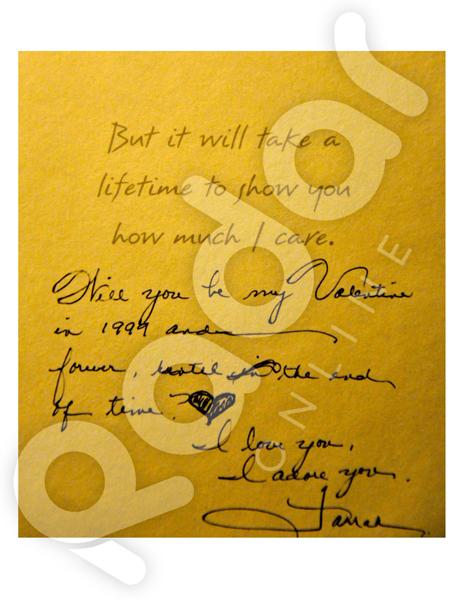 But it will take a
lifetime to show you
how much I care.
Will you be my Valentine
in 1997 and
forever, until the end
of time?
I love you,
I adore you.
Farrah
radar
ONLINE